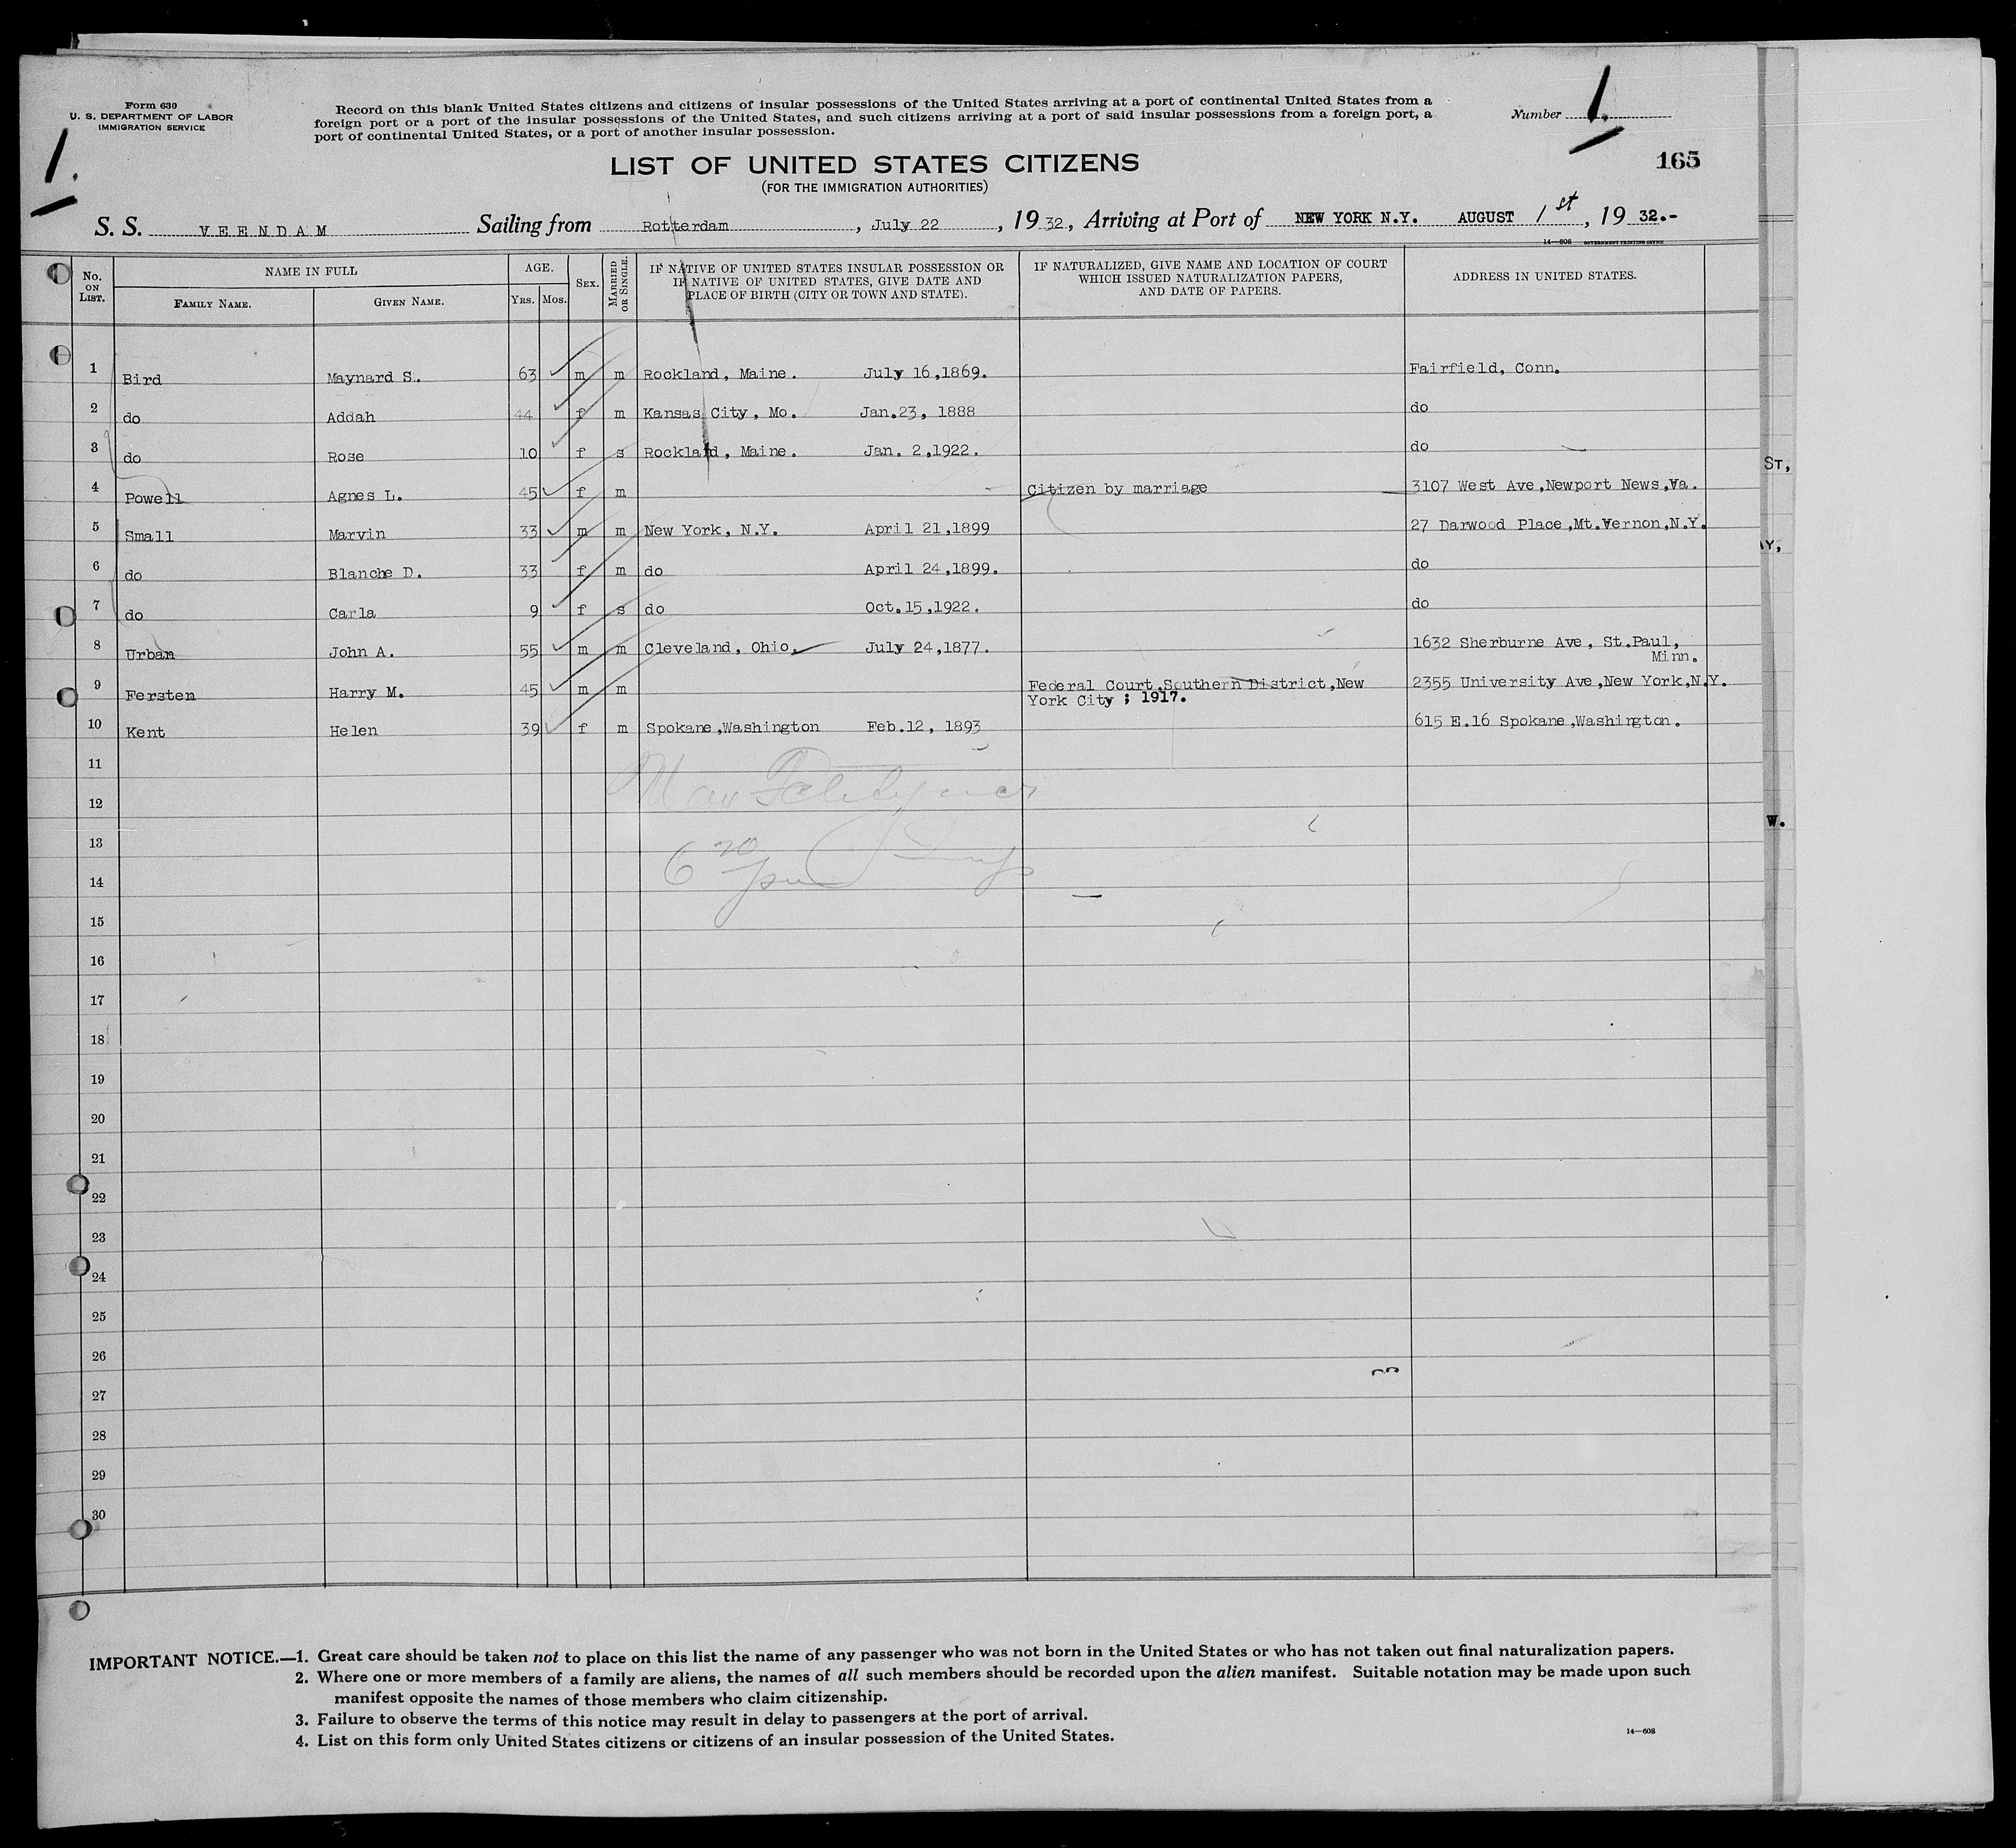 Form 630
U. S. DEPARTMENT OF LABOR
IMMIGRATION SERVICE
Record on this blank United States citizens and citizens of insular possessions of the United States arriving at a port of continental United States from a
foreign port or a port of the insular possessions of the United States, and such citizens arriving at a port of said insular possessions from a foreign port, a
port of continental United States, or a port of another insular possession.
Number 1.
1.
165
LIST OF UNITED STATES CITIZENS
(FOR THE IMMIGRATION AUTHORITIES)
S. S. VEENDAM Sailing from Rotterdam, July 22, 1932, Arriving at Port of NEW YORK N.Y. AUGUST 1st, 1932.-
14—608 GOVERNMENT PRINTING OFFICE
No. ON LIST. NAME IN FULL FAMILY NAME. GIVEN NAME. AGE. YRS. MOS. SEX. MARRIED OR SINGLE. IF NATIVE OF UNITED STATES INSULAR POSSESSION OR IF NATIVE OF UNITED STATES, GIVE DATE AND PLACE OF BIRTH (CITY OR TOWN AND STATE). IF NATURALIZED, GIVE NAME AND LOCATION OF COURT WHICH ISSUED NATURALIZATION PAPERS, AND DATE OF PAPERS. ADDRESS IN UNITED STATES.
1 Bird Maynard S. 63 m m Rockland, Maine. July 16,1869. Fairfield, Conn.
2 do Addah 44 f m Kansas City, Mo. Jan.23, 1888 do
3 do Rose 10 f s Rockland, Maine. Jan. 2,1922. do
4 Powell Agnes L. 45 f m Citizen by marriage 3107 West Ave,Newport News,Va.
5 Small Marvin 33 m m New York, N.Y. April 21,1899 27 Darwood Place,Mt.Vernon,N.Y.
6 do Blanche D. 33 f m do April 24,1899. do
7 do Carla 9 f s do Oct.15,1922. do
8 Urban John A. 55 m m Cleveland, Ohio. July 24,1877. 1632 Sherburne Ave, St.Paul,
Minn.
9 Fersten Harry M. 45 m m Federal Court,Southern District,New 2355 University Ave,New York,N.Y.
York City ; 1917.
10 Kent Helen 39 f m Spokane,Washington Feb.12, 1893 615 E.16 Spokane,Washington.
11
12
13
14
15
16
17
18
19
20
21
22
23
24
25
26
27
28
29
30
ST,
W.
IMPORTANT NOTICE.—1. Great care should be taken not to place on this list the name of any passenger who was not born in the United States or who has not taken out final naturalization papers.
2. Where one or more members of a family are aliens, the names of all such members should be recorded upon the alien manifest. Suitable notation may be made upon such
manifest opposite the names of those members who claim citizenship.
3. Failure to observe the terms of this notice may result in delay to passengers at the port of arrival.
4. List on this form only United States citizens or citizens of an insular possession of the United States.
14—608